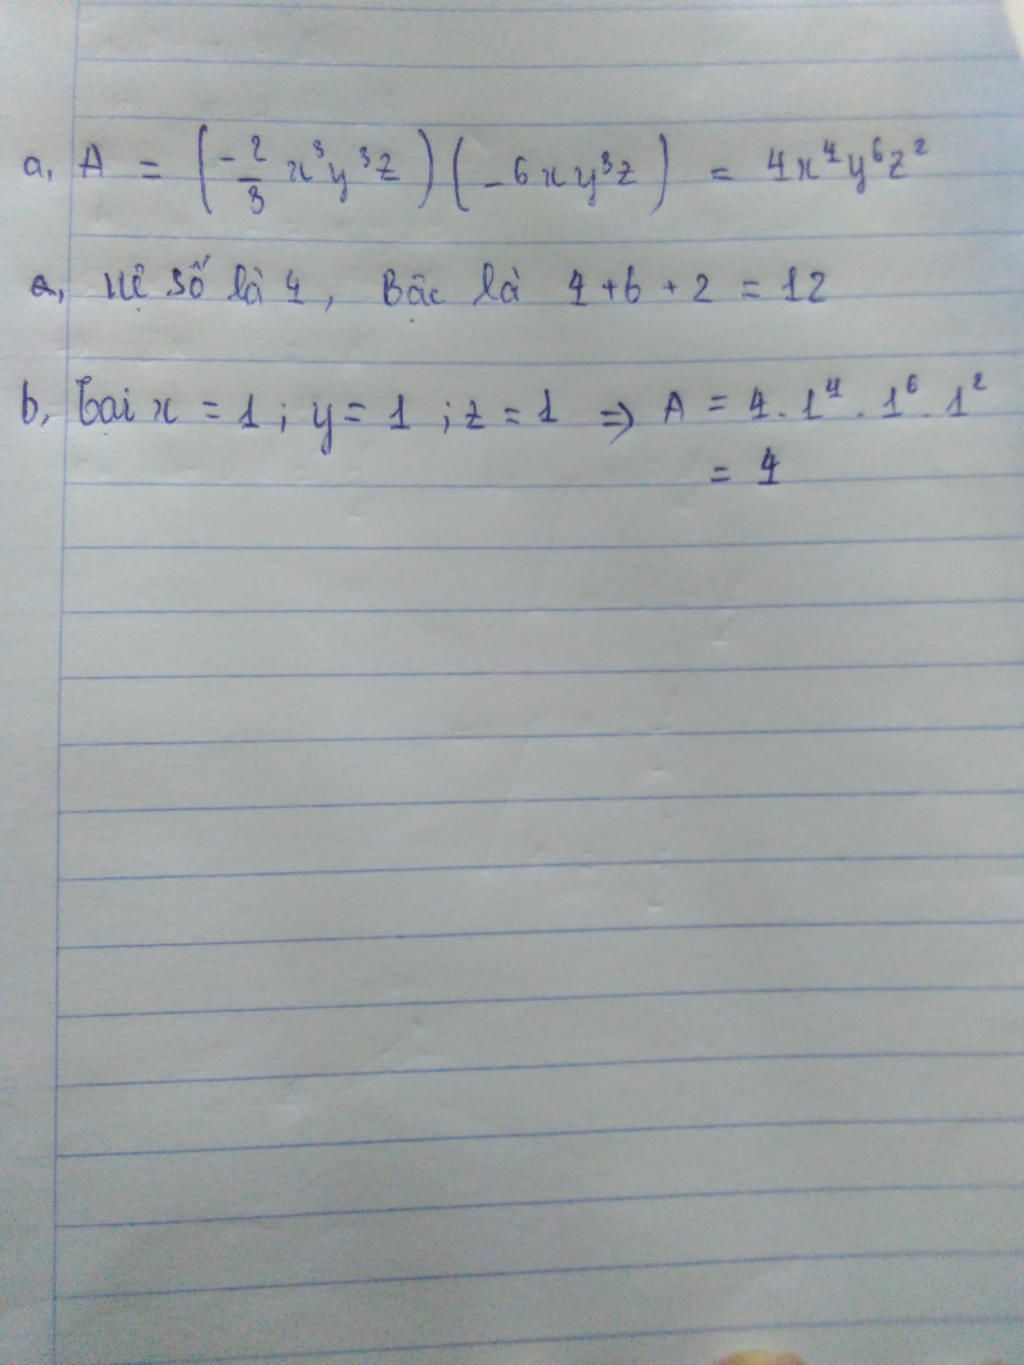 a, A = (-2/3 x³y³z)(-6xy³z) = 4x⁴y⁶z²
a, Hệ số là 4, Bậc là 4+6+2 = 12
b, Tại x = 1; y = 1; z = 1 => A = 4.1⁴.1⁶.1²
= 4